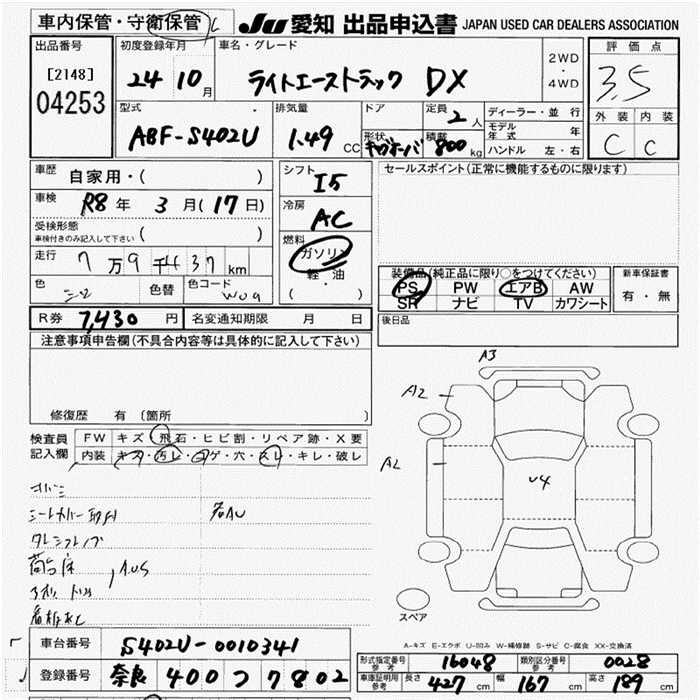 車内保管・守衛保管
JU 愛知 出品申込書 JAPAN USED CAR DEALERS ASSOCIATION
出品番号
[2148]
04253
初度登録年月
24 10 月
車名・グレード
ライトエーストラック DX
2WD
・
4WD
評価点
3.5
外装 内装
C C
型式
ABF-S402U
排気量
1.49 CC
ドア
形状
定員 2 人
積載 800 kg
ディーラー・並行
モデル年式 年
ハンドル 左・右
車歴
自家用・( )
車検 R8 年 3 月(17日)
受検形態
車検付きのみ記入して下さい ( )
走行 7万9千437 km
色 色替 色コード W09
シフト
I5
冷房
AC
燃料
ガソリン
軽・油
( )
セールスポイント(正常に機能するものに限ります)
装備品(純正品に限り○をつけてください)
PS PW エアB AW
SR ナビ TV カワシート
新車保証書
有・無
R券 7,430 円 名変通知期限 月 日
後日品
注意事項申告欄(不具合内容等は具体的に記入して下さい)
修復歴 有(箇所 )
検査員
記入欄
FW キズ・飛石・ヒビ割・リペア跡・X要
内装 キズ・汚レ・コゲ・穴・スレ・キレ・破レ
シートカバー取付
荷台床
看板nし
A3
A2
A2
U4
スペア
A-キズ E-エクボ U-凹み W-補修跡 S-サビ C-腐食 XX-交換済
車台番号 S402U-0010341
登録番号 奈良 400 つ 7802
形式指定番号 参考 16048 類別区分番号 参考 0028
車庫証明用 参考 長さ 427 cm 幅 167 cm 高さ 189 cm